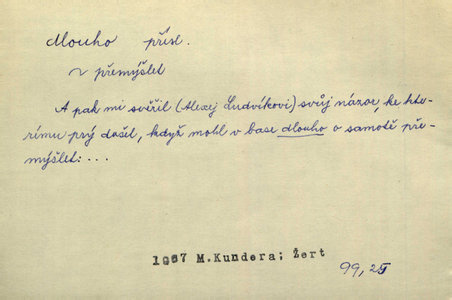 dlouho přísl.
~ přemýšlet
A pak mi svěřil (Alexej Ludvíkovi) svůj názor, ke kte-
rému prý došel, když mohl v base dlouho o samotě pře-
mýšlet: ...
1967 M.Kundera; Žert
99, 25